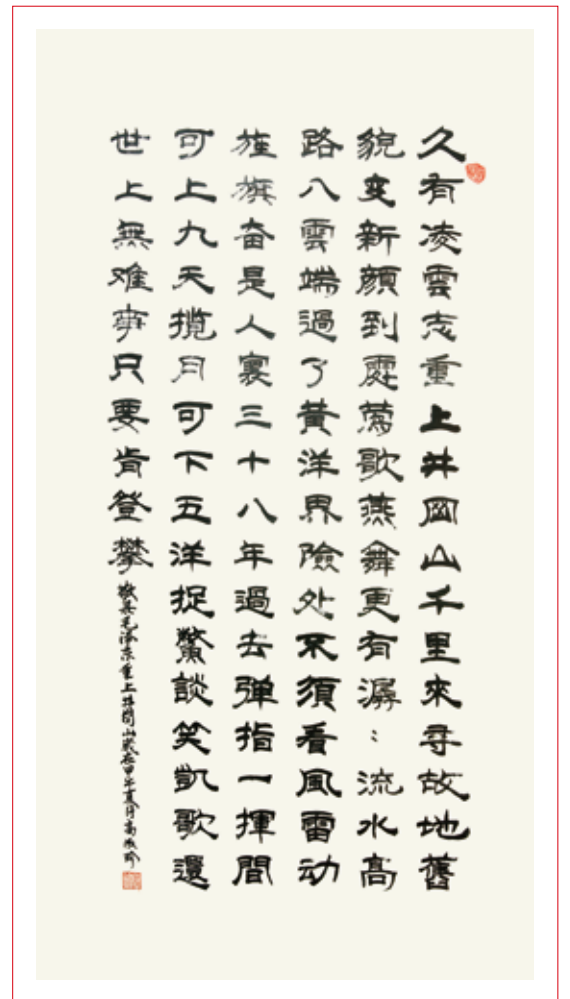 久有凌雲志重上井岡山千里來寻故地舊
貌変新顔到處莺歌燕舞更有潺：流水髙
路入雲端過了黄洋界險处不須看風雷动
旌旗奋是人寰三十八年過去弹指一揮間
可上九天揽月可下五洋捉鱉談笑凱歌還
世上無难事只要肯登攀
敬录毛泽东重上井岡山歲在甲午夏月高